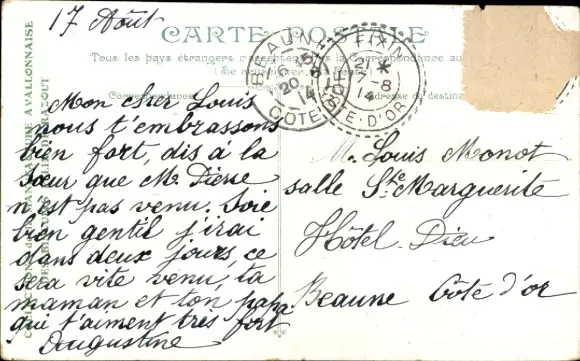 17 Août
CARTE POSTALE
Tous les pays étrangers n'acceptent pas la Correspondance au
Correspondance
Adresse du destina
Mon cher Louis
nous t'embrassons
bien fort, dis à la
Sœur que M. Pierre
n'est pas venu. Soie
bien gentil j'irai
dans deux jours, ce
sera vite venu, ta
maman et ton papa
qui t'aiment très fort
Augustine
M. Louis Monot
salle Ste Marguerite
Hôtel-Dieu
Beaune Côte d'or
BEAUNE
20 8
14
CÔTE D'OR
FIXIN
21 8
14
CÔTE-D'OR